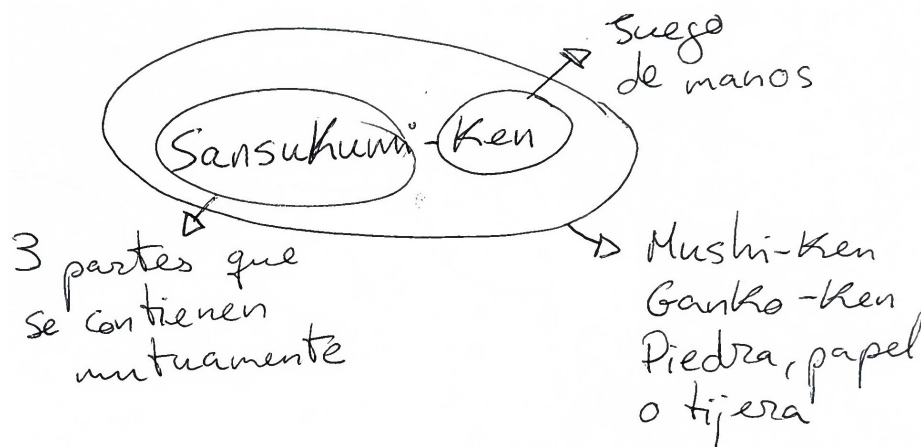 Juego
de manos
Sansukumi-Ken
3 partes que
se contienen
mutuamente
Mushi-Ken
Ganko-Ken
Piedra, papel
o tijera